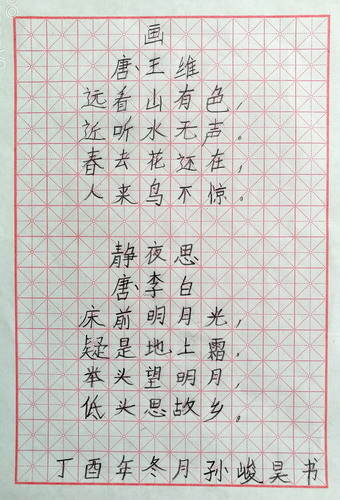 画
唐、王维
远看山有色，
近听水无声。
春去花还在，
人来鸟不惊。
静夜思
唐、李白
床前明月光，
疑是地上霜.
举头望明月，
低头思故乡。
丁酉年冬月孙峻昊书